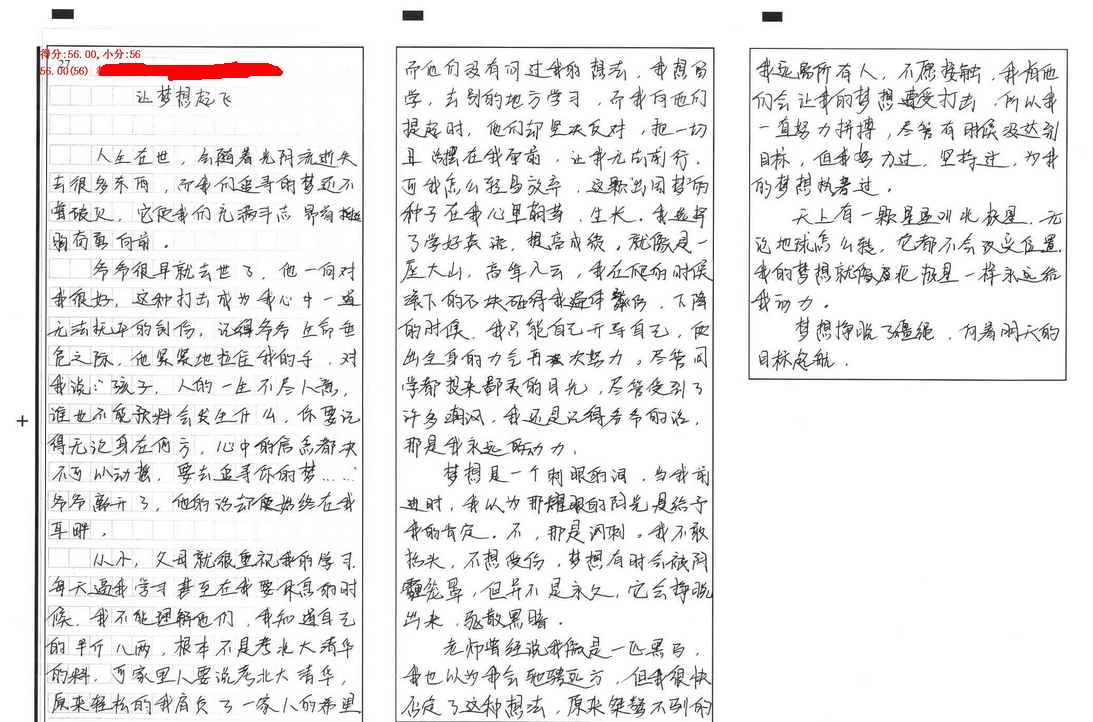 得分:56.00,小分:56
27
56.00(56)
让梦想起飞
人生在世，会随着光阴流逝失
去很多东西，而我们追寻的梦还不
曾破灭，它使我们充满斗志 昂首挺
胸奋勇向前。
爷爷很早就去世了，他一向对
我很好，这种打击成为我心中一道
无法抚平的创伤，记得爷爷生命垂
危之际，他紧紧地拉住我的手，对
我说：“孩子，人的一生不尽人意，
谁也不能预料会发生什么，你要记
得无论身在何方，心中的信念都决
不可以动摇，要去追寻你的梦……
爷爷离开了，他的话却始终在我
耳畔。
从小，父母就很重视我的学习，
每天逼我学习 甚至在我要休息的时
候，我不能理解他们，我知道自己
的半斤八两，根本不是考北大清华
的料，可家里人要说考北大清华，
原来轻松的我肩负了一家人的希望
而他们没有问过我的想法，我想留
学，去别的地方学习，而我向他们
提起时，他们却坚决反对，把一切
摆在我面前，让我无法前行，
可我怎么轻易放弃，这颗出国梦的
种子在我心里萌芽、生长。我选择
了学好英语，提高成绩。就像是一
座大山，高耸入云，我在爬的时候
滚下的石块砸得我遍体鳞伤，下降
的时候，我只能自己开导自己，使
出全身的力气再次努力。尽管同
学都投来鄙夷的目光，尽管受到了
许多嘲讽，我还是记得爷爷的话，
那是我永远的动力。
梦想是一个刺眼的词，当我前
进时，我以为那耀眼的阳光是给予
我的肯定。不，那是讽刺。我不敢
抬头，不想受伤，梦想有时会被阴
霾笼罩，但并不是永久，它会挣脱
出来，驱散黑暗。
老师曾经说我像是一匹黑马，
我也以为我会驰骋远方，但我很快
否定了这种想法，原来桀骜不驯的
我远离所有人，不愿接触，我怕他
们会让我的梦想遭受打击，所以我
一直努力拼搏，尽管有时候没达到
目标，但我努力过，坚持过，为我
的梦想执着过。
天上有一颗星星叫北极星，无
论地球怎么转，它都不会改变位置，
我的梦想就像北极星一样永远给
我动力。
梦想挣脱了缰绳，向着明天的
目标起航。